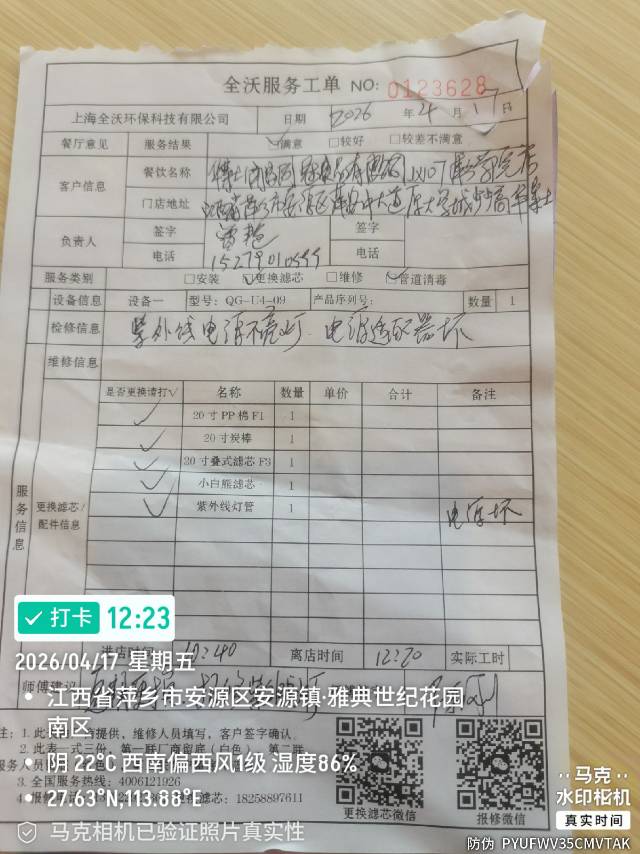 全沃服务工单 NO: 0123628
上海全沃环保科技有限公司 日期 2026 年 4 月 17 日
餐厅意见 服务结果 ☑满意 □较好 □较差不满意
客户信息 餐饮名称
门店地址
负责人 签字 签字
电话 电话
服务类别 □安装 ☑更换滤芯 □维修 ☑管道消毒
设备信息 设备一 型号: QG-U4-09 产品序列号: 数量 1
检修信息 紫外线电源不亮灯 电源适配器坏
维修信息
是否更换请打√ 名称 数量 单价 合计 备注
服务信息
更换滤芯/配件信息
✓ 20寸PP棉F1 1
✓ 20寸炭棒 1
✓ 20寸叠式滤芯F3 1
✓ 小白熊滤芯 1
✓ 紫外线灯管 1 电源坏
进店时间 10:40 离店时间 12:20 实际工时
师傅建议
注: 1. 此
提供，维修人员填写，客户签字确认。
2. 此表一式三份，第一联厂商留底（白色），第二联
3. 全国服务热线: 4006121926
滤芯: 18258897611
更换滤芯微信 报修微信
打卡 12:23
2026/04/17 星期五
江西省萍乡市安源区安源镇·雅典世纪花园南区
阴 22℃ 西南偏西风1级 湿度86%
27.63°N,113.88°E
马克相机已验证照片真实性
马克
水印相机
真实时间
防伪 PYUFWV35CMVTAK